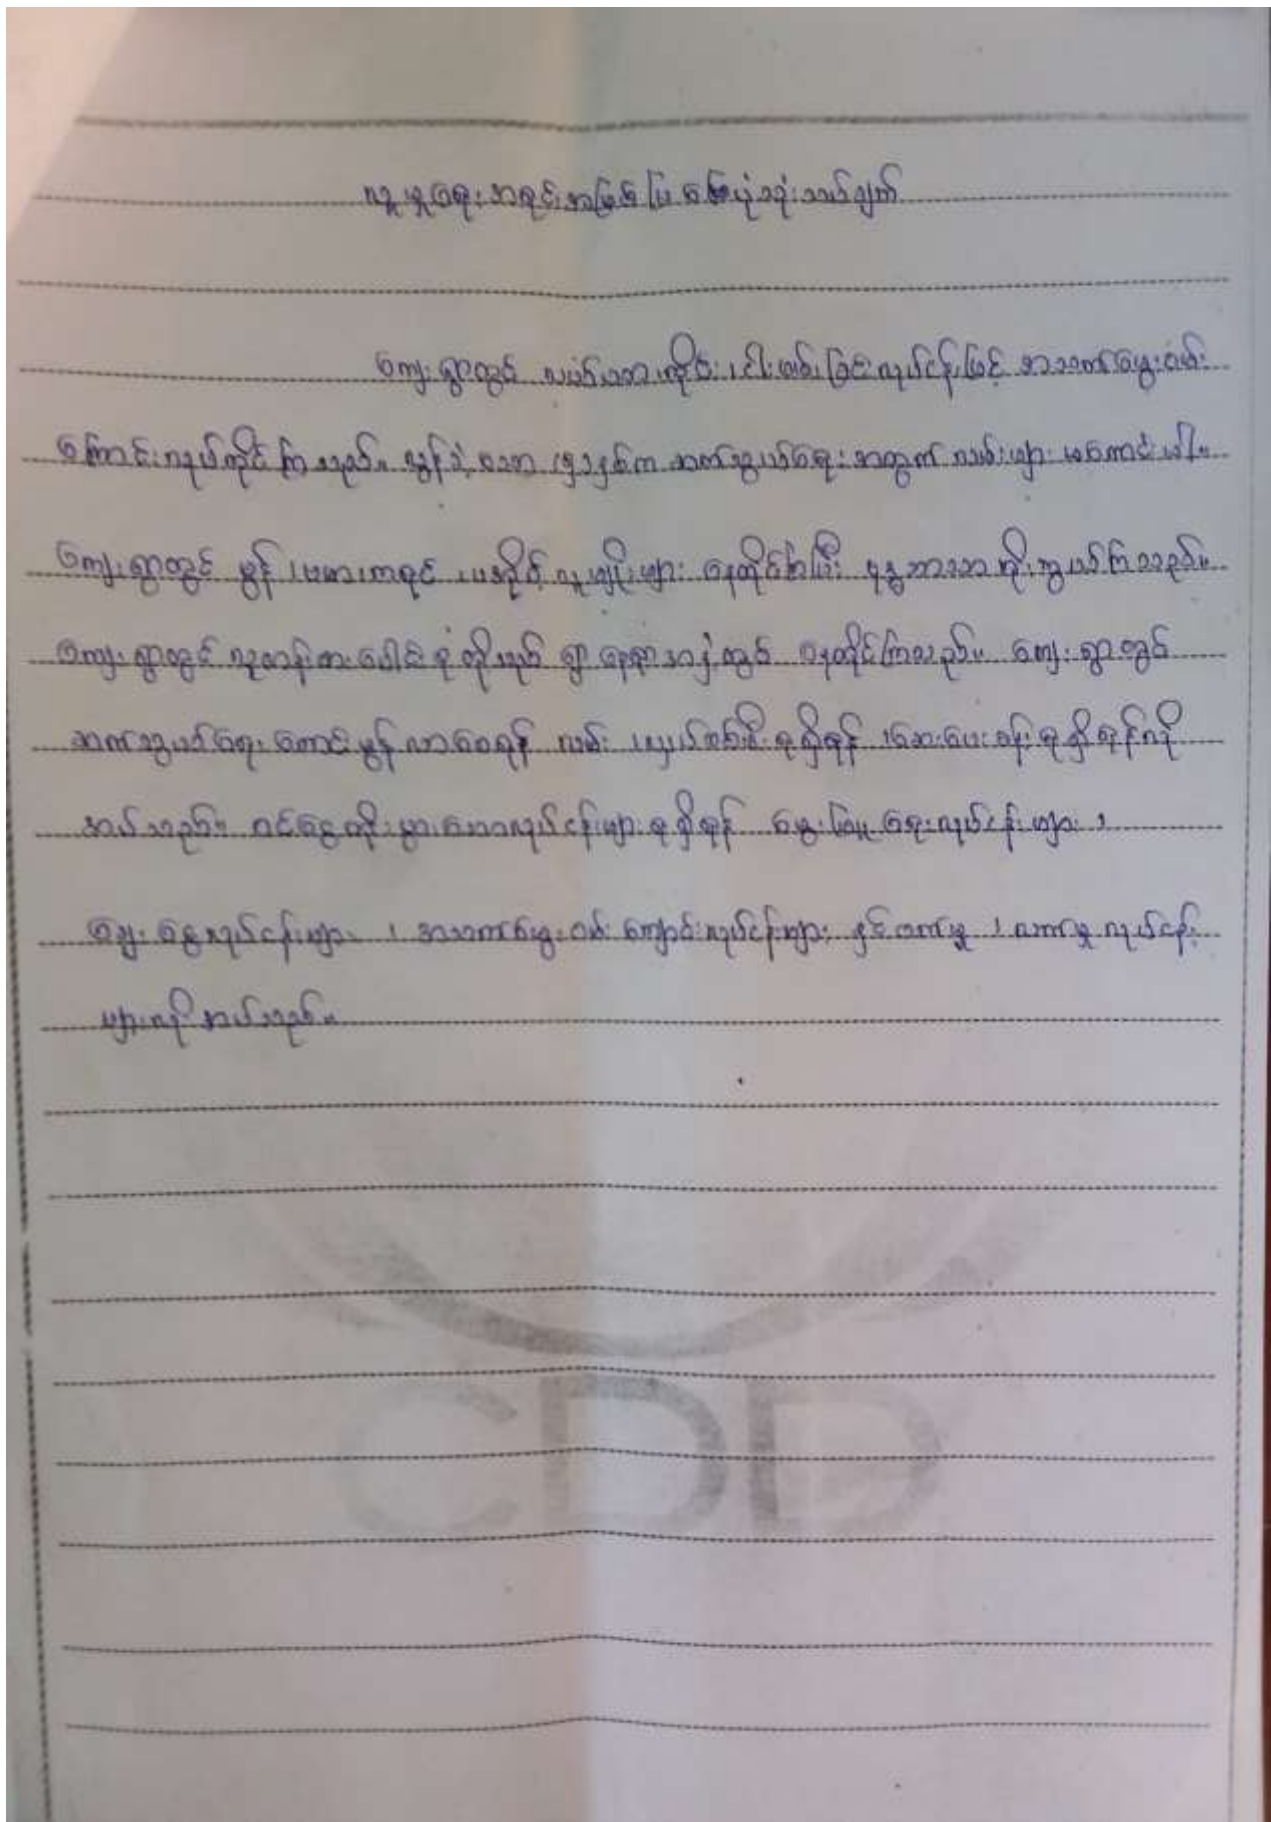 လူမှုရေးအရင်းအမြစ်ပြ မြေပုံသုံးသပ်ချက်
ကျေးရွာတွင် လယ်ယာ၊ ကိုင်း၊ ငါးဖမ်းခြင်းလုပ်ငန်းဖြင့် အသက်မွေးဝမ်း
ကြောင်းလုပ်ကိုင်ကြသည်။ လွန်ခဲ့သော ၅နှစ်က ဆက်သွယ်ရေးအတွက် လမ်းများ မကောင်းပါ။
ကျေးရွာတွင် မွန်၊ ဗမာ၊ ကရင်၊ ပအိုဝ့် လူမျိုးများ နေထိုင်ကြပြီး ဗုဒ္ဓဘာသာ ကိုးကွယ်ကြသည်။
ကျေးရွာတွင် လူတန်းစားပေါင်းစုံတို့သည် ရွာနေရာအနှံ့တွင် နေထိုင်ကြသည်။ ကျေးရွာတွင်
ဆက်သွယ်ရေး ကောင်းမွန်လာစေရန် လမ်း၊ လျှပ်စစ်မီးရရှိရန်၊ ဆေးပေးခန်းရရှိရန်လို
အပ်သည်။ ဝင်ငွေတိုးပွားသောလုပ်ငန်းများရရှိရန် မွေးမြူရေးလုပ်ငန်းများ၊
ချေးငွေလုပ်ငန်းများ၊ အသက်မွေးဝမ်းကျောင်းလုပ်ငန်းများ နှင့် လုပ်ငန်း
များလိုအပ်သည်။
CDD